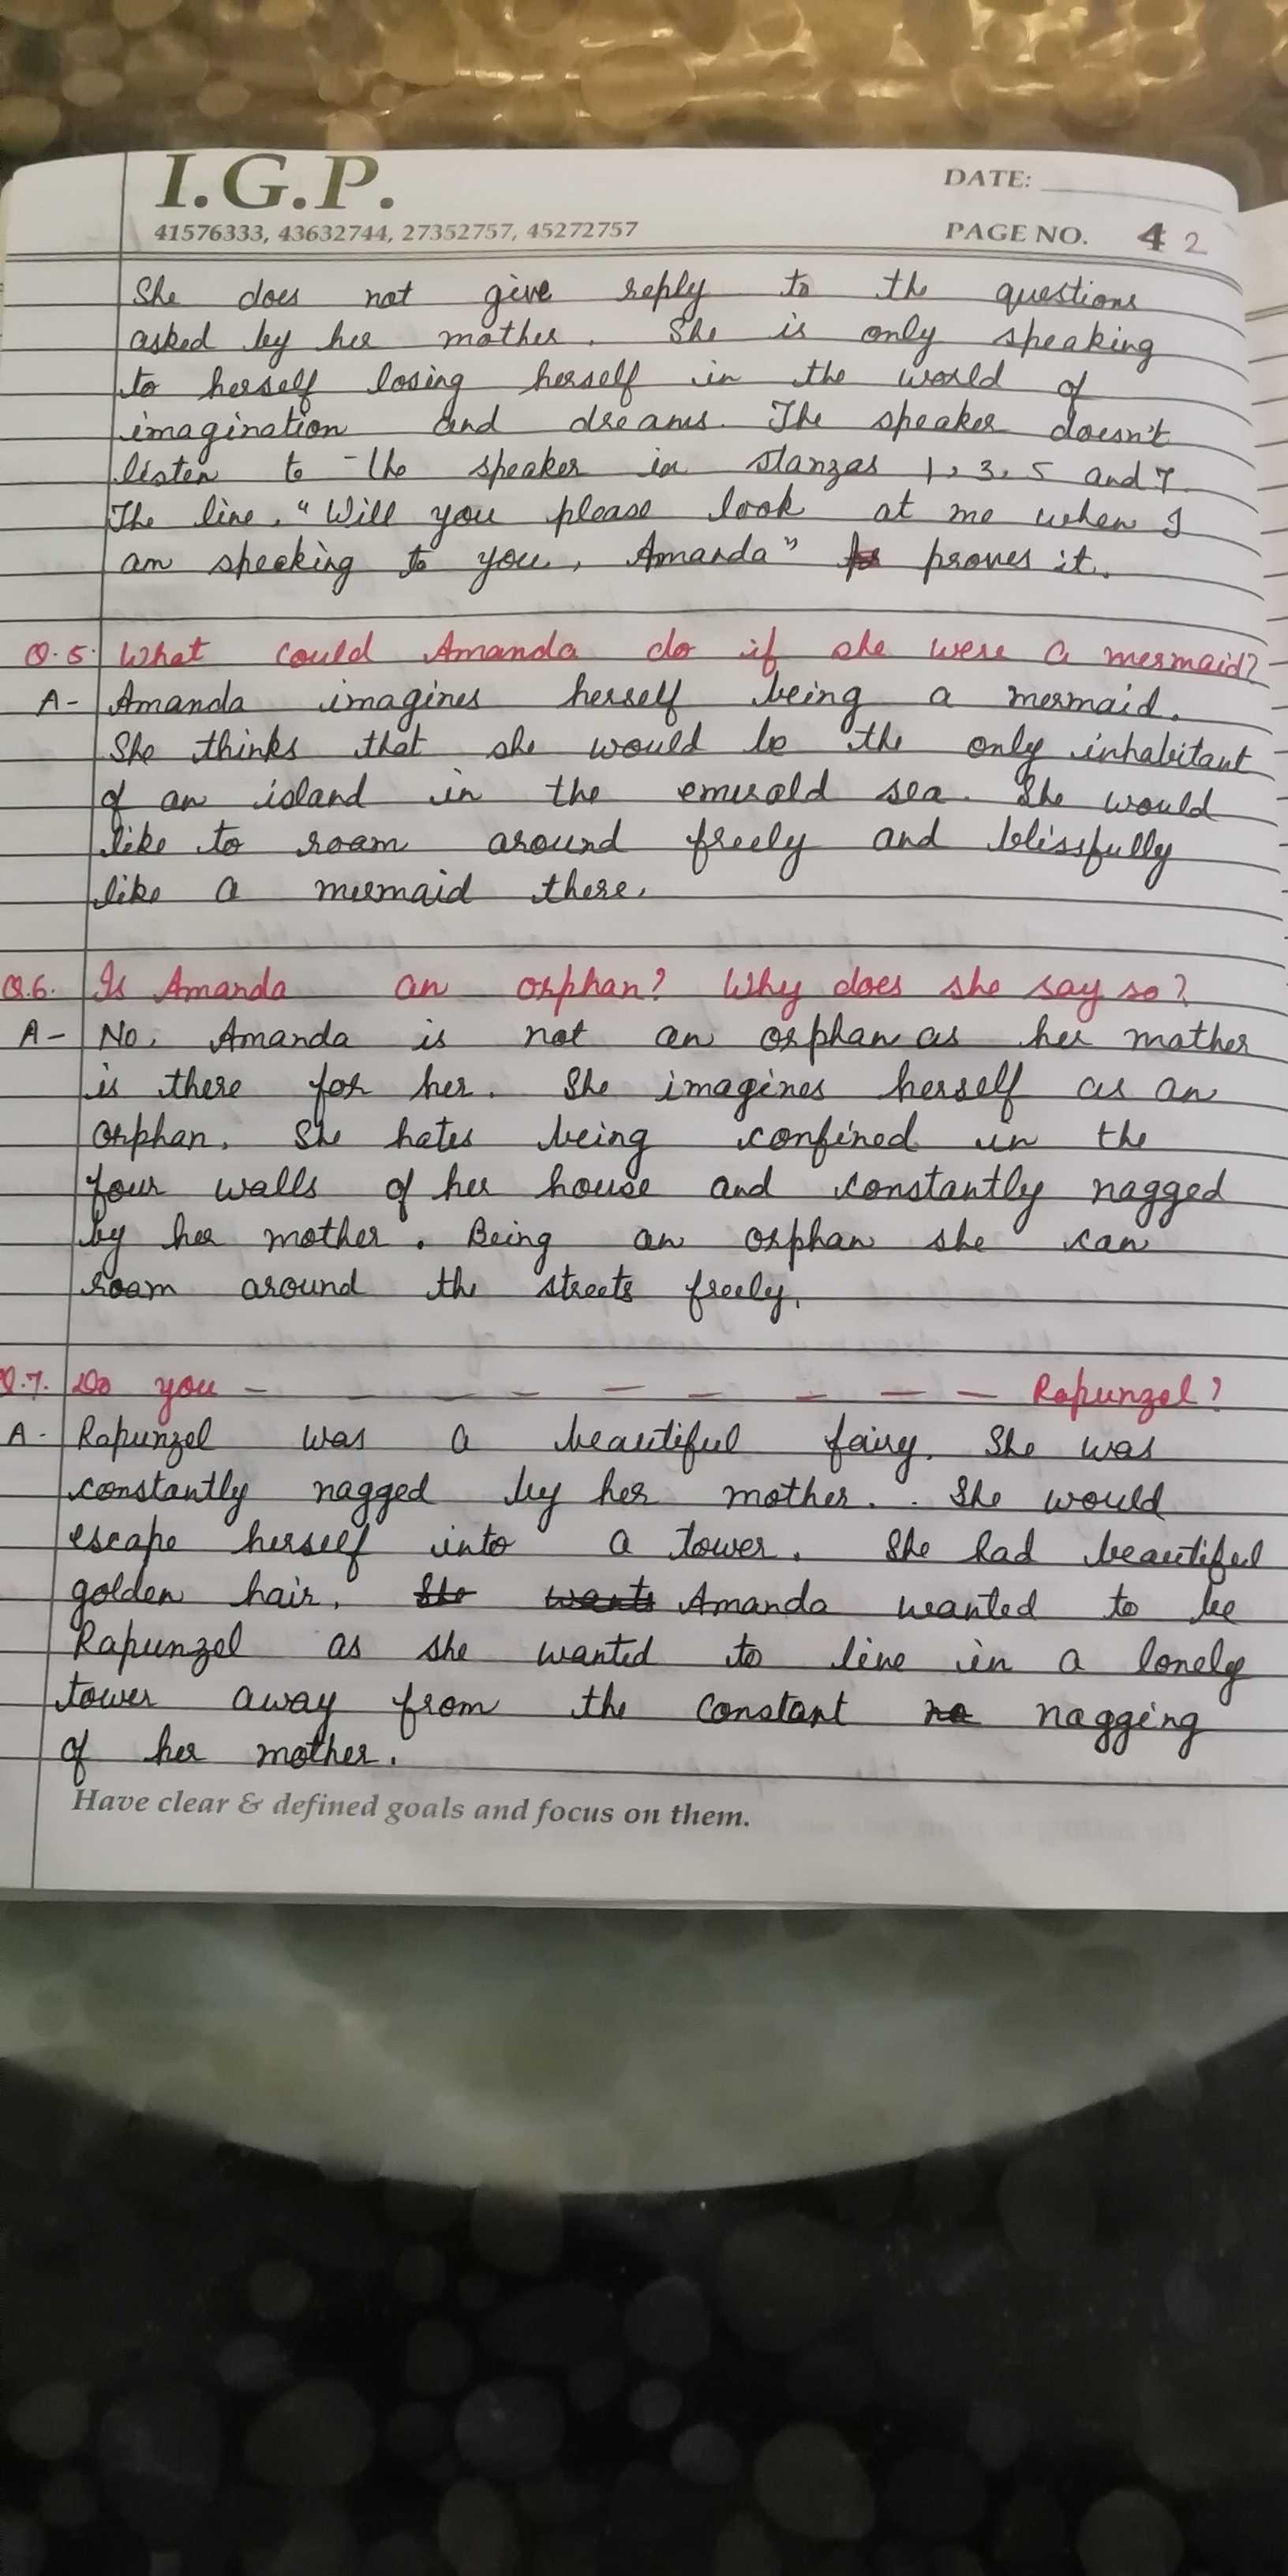 I.G.P.
41576333, 43632744, 27352757, 45272757
DATE:
PAGE NO. 42
She does not give reply to the questions
asked by her mother. She is only speaking
to herself losing herself in the world of
imagination and dreams. The speaker doesn't
listen to the speaker in stanzas 1, 3, 5 and 7.
The line, "Will you please look at me when I
am speeking to you, Amanda" proves it.
Q.5. What could Amanda do if she were a mermaid?
A- Amanda imagines herself being a mermaid.
She thinks that she would be the only inhabitant
of an island in the emerald sea. She would
like to roam around freely and blissfully
like a mermaid there.
Q.6. Is Amanda an orphan? Why does she say so?
A- No, Amanda is not an orphan as her mother
is there for her. She imagines herself as an
orphan. She hates being confined in the
four walls of her house and constantly nagged
by her mother. Being an orphan she can
roam around the streets freely.
Q.7. Do you - - - - - - - - - Rapunzel?
A- Rapunzel was a beautiful fairy. She was
constantly nagged by her mother. She would
escape herself into a tower. She had beautiful
golden hair. She wants Amanda wanted to be
Rapunzel as she wanted to live in a lonely
tower away from the constant na nagging
of her mother.
Have clear & defined goals and focus on them.